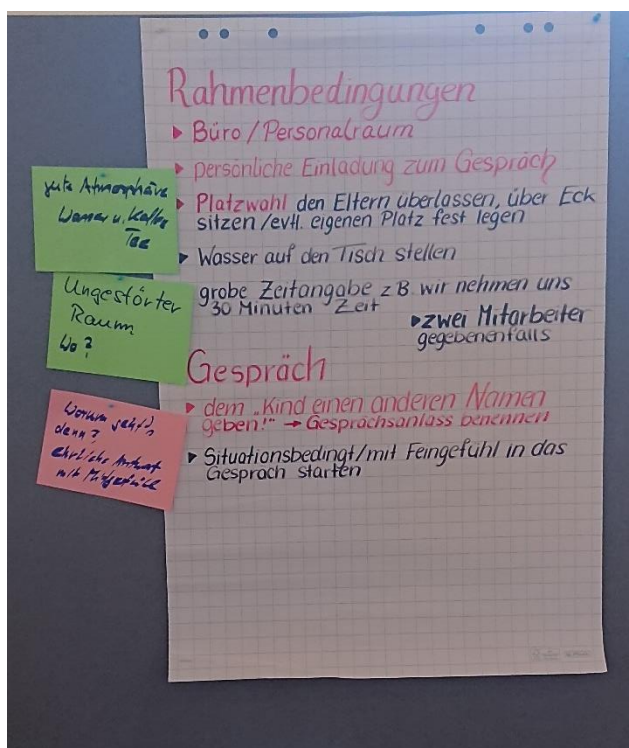 Rahmenbedingungen
▸ Büro / Personalraum
▸ persönliche Einladung zum Gespräch
▸ Platzwahl den Eltern überlassen, über Eck
sitzen / evtl. eigenen Platz fest legen
▸ Wasser auf den Tisch stellen
grobe Zeitangabe z B. wir nehmen uns
30 Minuten Zeit
▸ zwei Mitarbeiter
gegebenenfalls
Gespräch
▸ dem „Kind einen anderen Namen
geben!" → Gesprächsanlass benennen
▸ Situationsbedingt/mit Feingefühl in das
Gespräch starten
gute Atmosphäre
Wasser u. Kaffee
Tee
Ungestörter
Raum
Wo?
Worum geht's
denn?
ehrliche Antwort
mit Mitgefühl